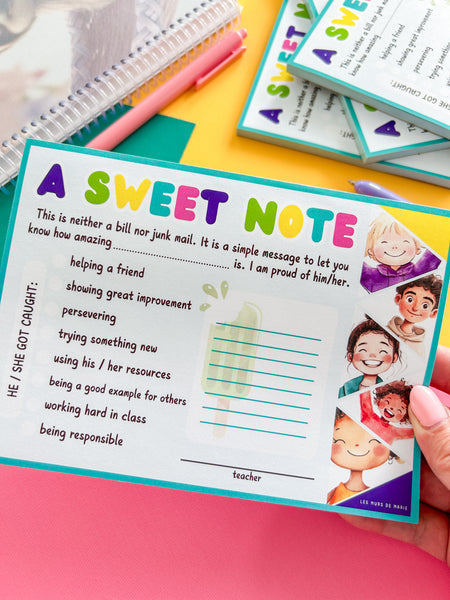 A SWEET NOTE
This is neither a bill nor junk mail. It is a simple message to let you
know how amazing.......................................is. I am proud of him/her.
HE / SHE GOT CAUGHT:
helping a friend
showing great improvement
persevering
trying something new
using his / her resources
being a good example for others
working hard in class
being responsible
teacher
LES MURS DE MARIE
A SWEET
This is neither a bill nor junk
know how amazing
helping a friend
showing great improvement
persevering
trying something
SHE GOT CAUGHT:
A SWE
This is neither
know how
A